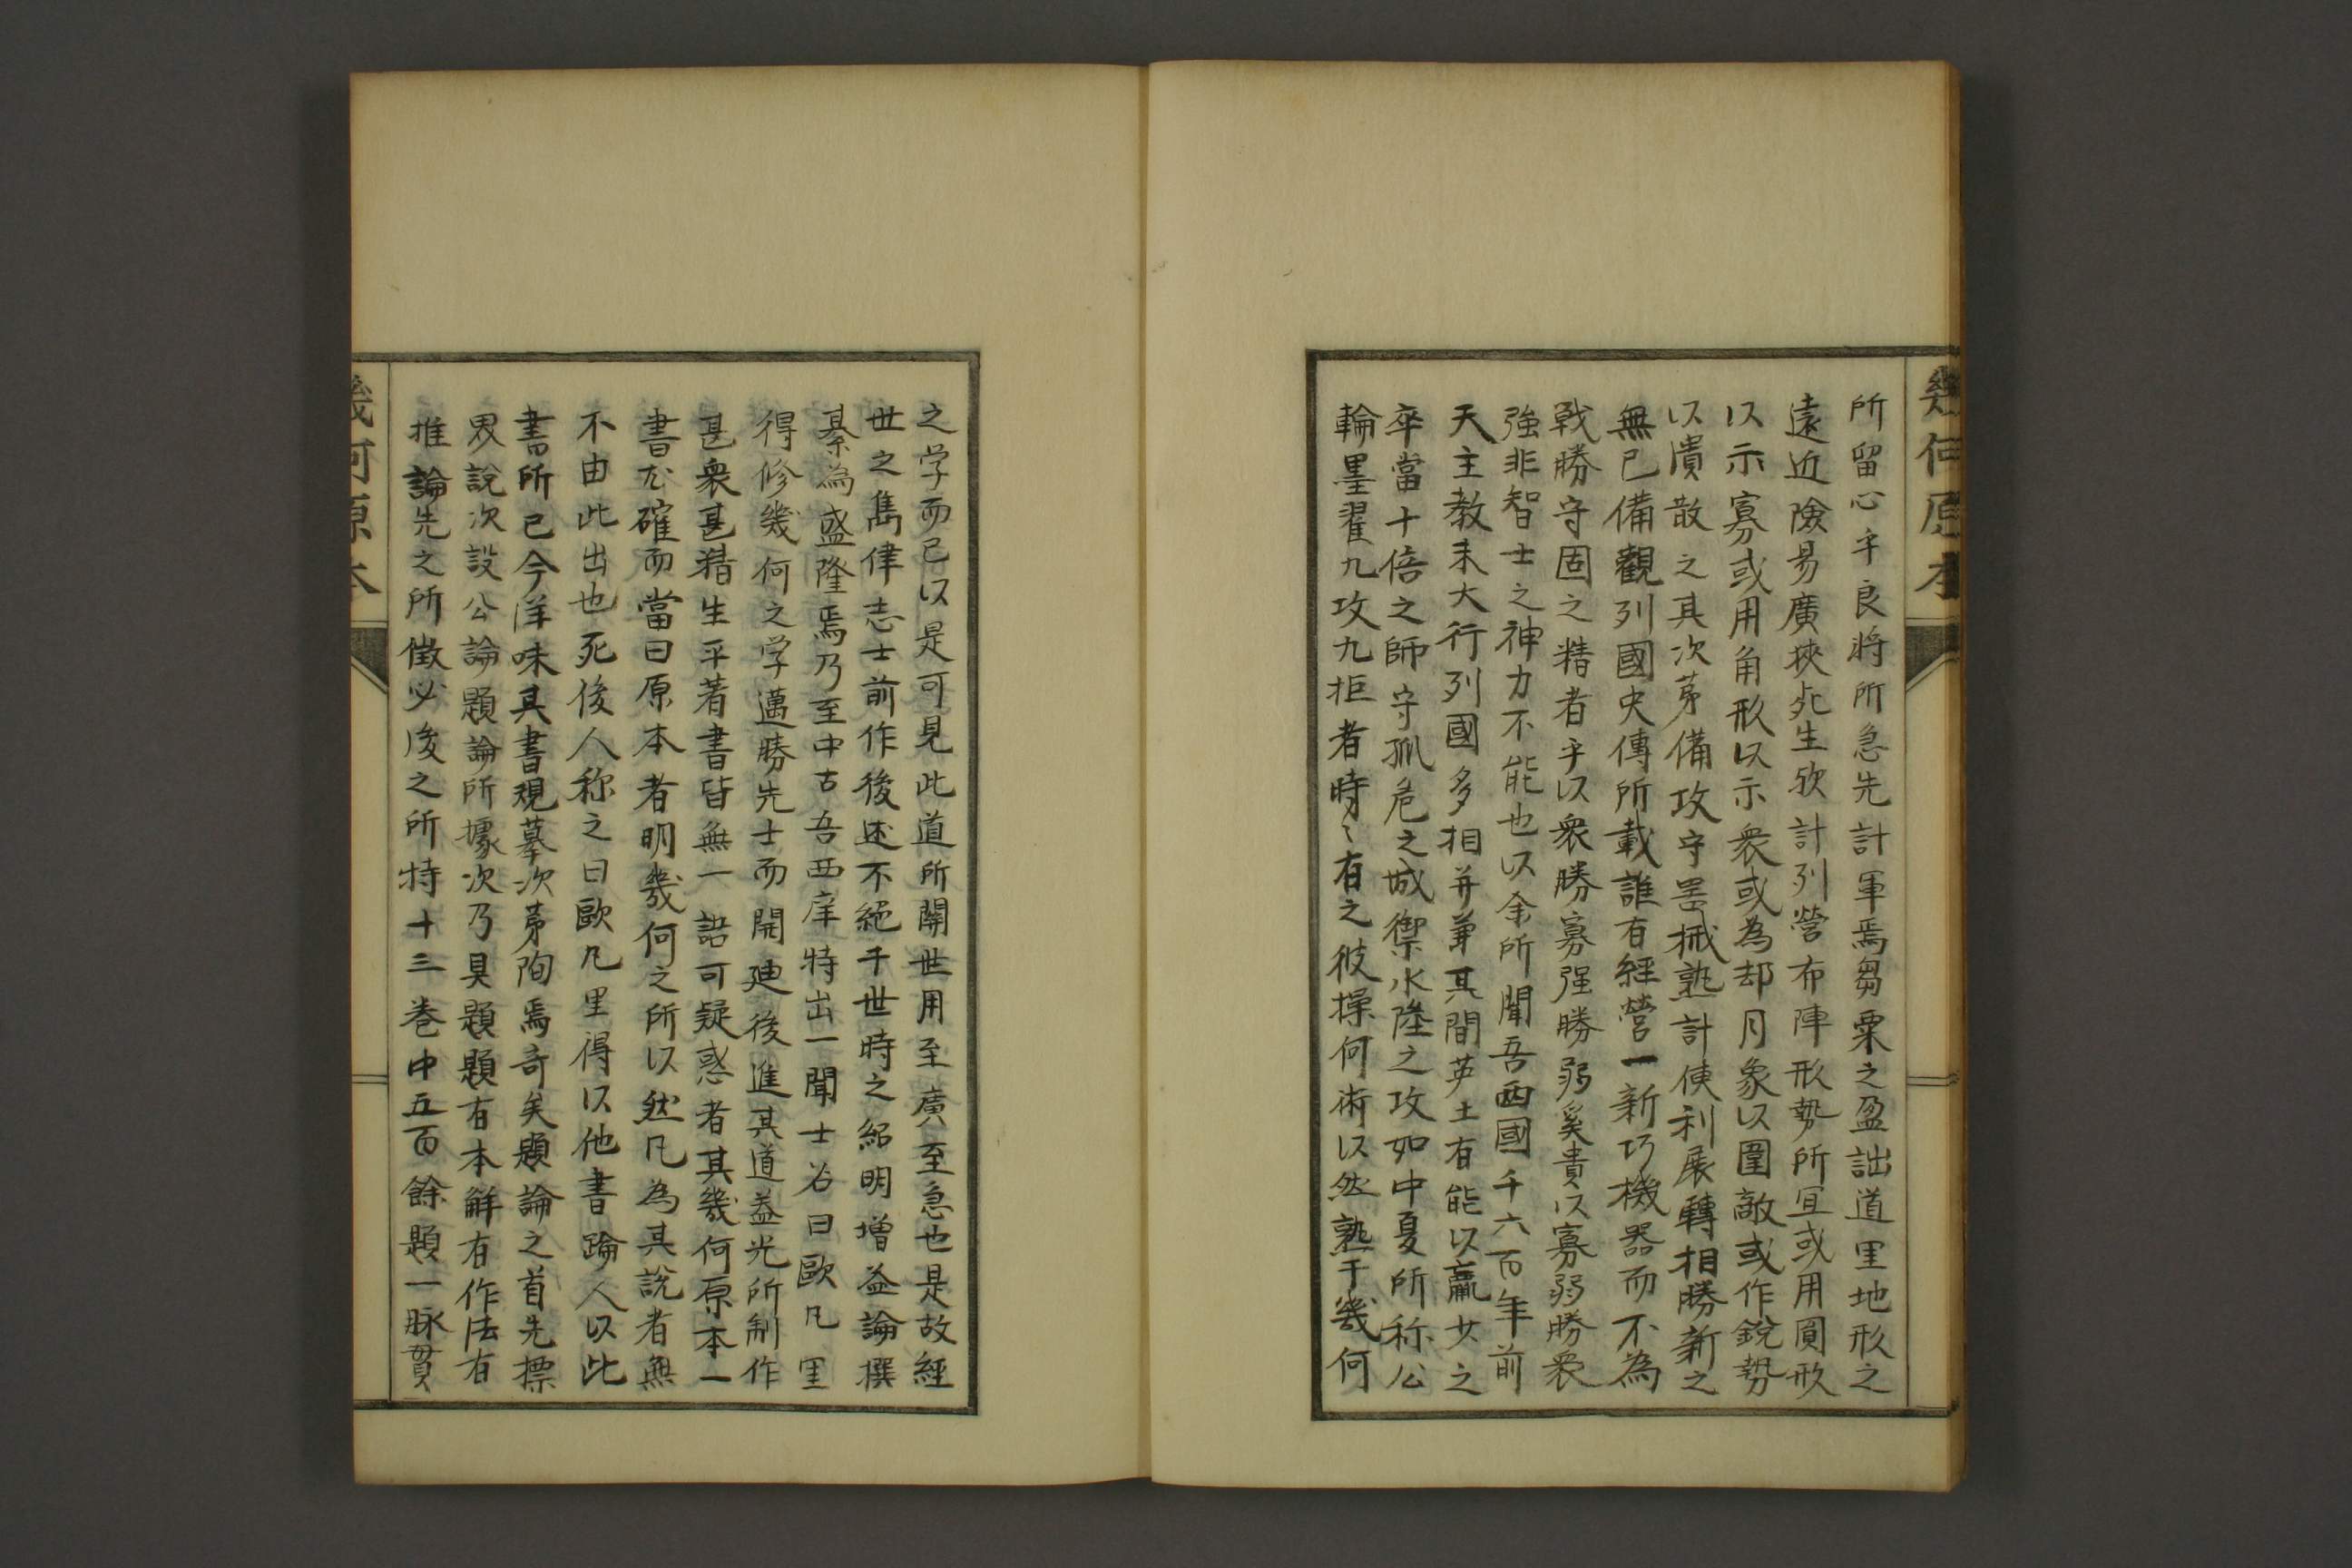 幾何原本
所留心乎良將所急先計軍焉芻粟之盈詘道里地形之
遠近險易廣狹死生次計列營布陣形勢所宜或用圓形
以示寡或用角形以示衆或為却月象以圍敵或作銳勢
以潰散之其次苐備攻守噐械熟計使利展轉相勝新之
無已備觀列國史傳所載誰有經營一新巧機器而不為
戰勝守固之精者乎以衆勝寡强勝弱奚貴以寡弱勝衆
強非智士之神力不能也以余所聞吾西國千六百年前
天主教未大行列國多相并兼其間英士有能以羸少之
卒當十倍之師守孤危之城禦水陸之攻如中夏所称公
輪墨翟九攻九拒者時〻有之彼操何術以然熟于幾何
之学而已以是可見此道所關世用至廣至急也是故經
世之雋偉志士前作後述不絕千世時之紹明增益論撰
綦為盛隆焉乃至中古吾西庠特出一聞士名曰歐几里
得修幾何之学邁勝先士而開廸後進其道益光所制作
甚衆甚精生平著書皆無一語可疑惑者其幾何原本一
書尤確而當曰原本者明幾何之所以然凡為其說者無
不由此出也死後人称之曰歐几里得以他書踰人以此
書所已今洋味其書規摹次苐陶焉奇矣題論之首先標
界說次設公論題論所據次乃具題題有本解有作法有
推論先之所徵必後之所恃十三巻中五百餘題一脉貫
幾何原本